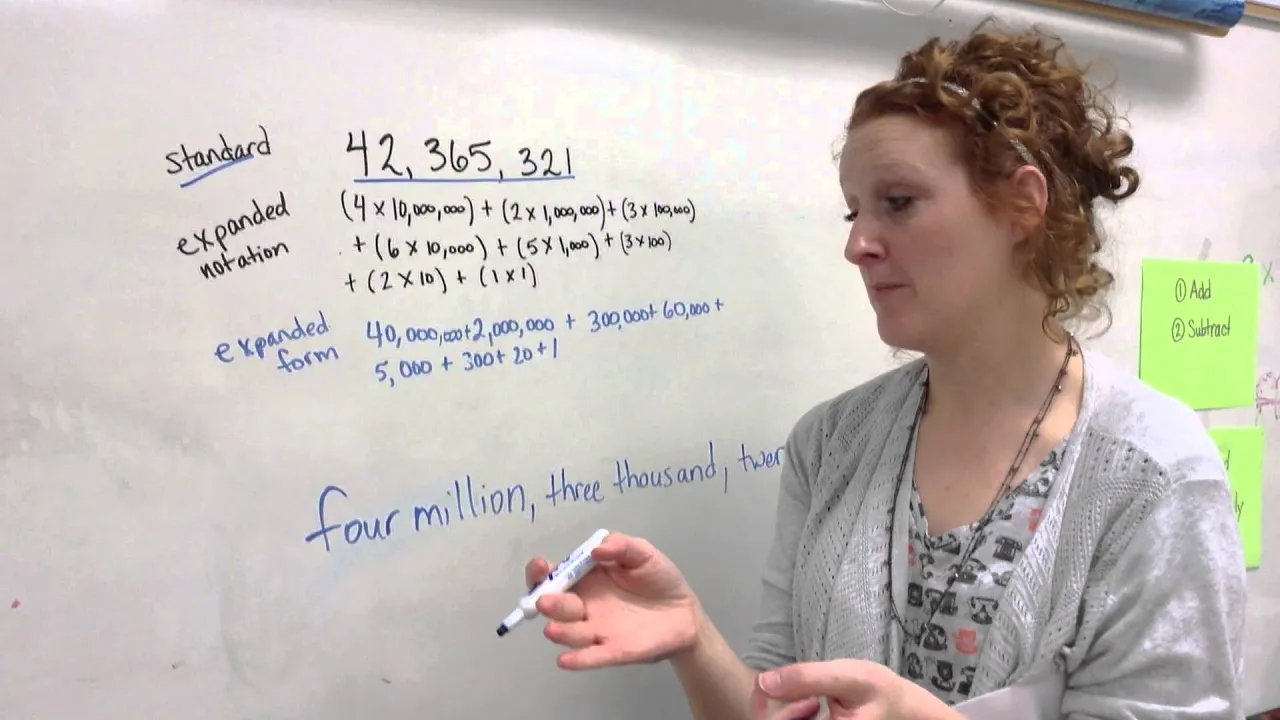 standard 42,365,321
expanded notation (4 x 10,000,000) + (2 x 1,000,000) + (3 x 100,000)
+ (6 x 10,000) + (5 x 1,000) + (3 x 100)
+ (2 x 10) + (1 x 1)
expanded form 40,000,000+2,000,000 + 300,000+ 60,000+
5,000 + 300+ 20+1
four million, three thousand,
① Add
② Subtract